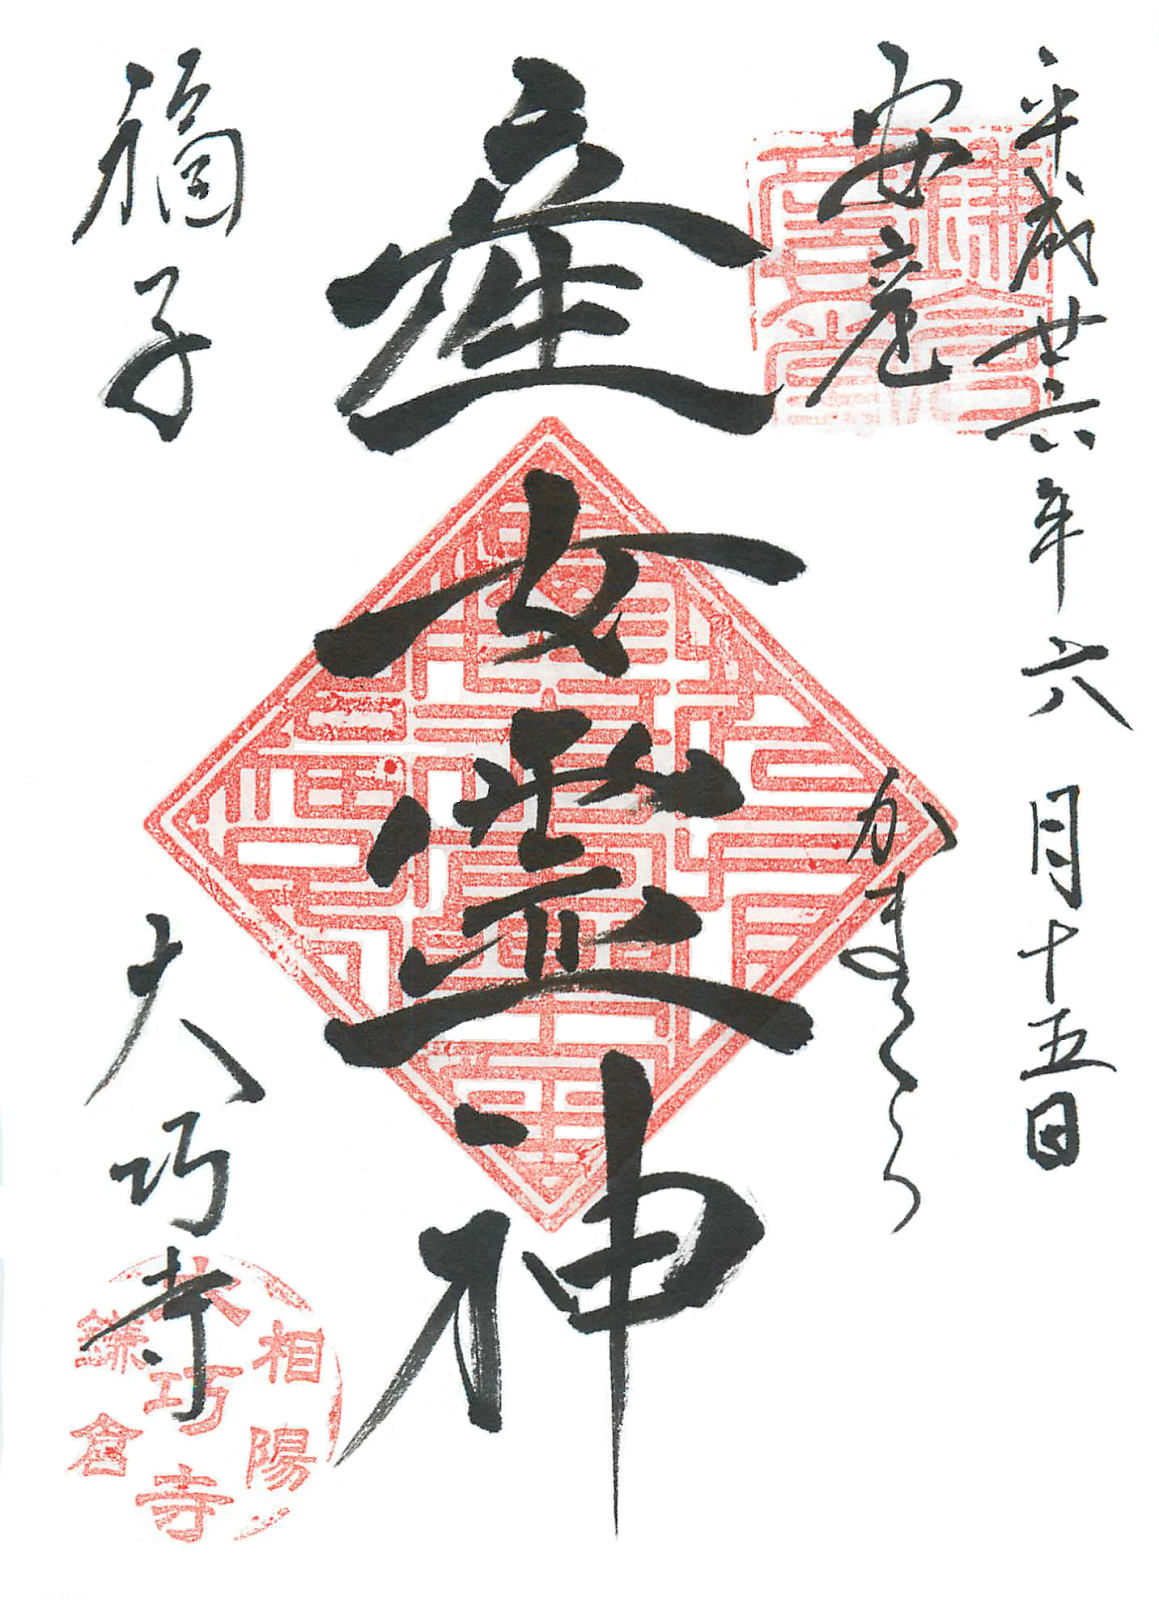 平成廿六年六月十五日
安産
かまくら
産女霊神
福子
大巧寺
相陽
大巧寺
鎌倉